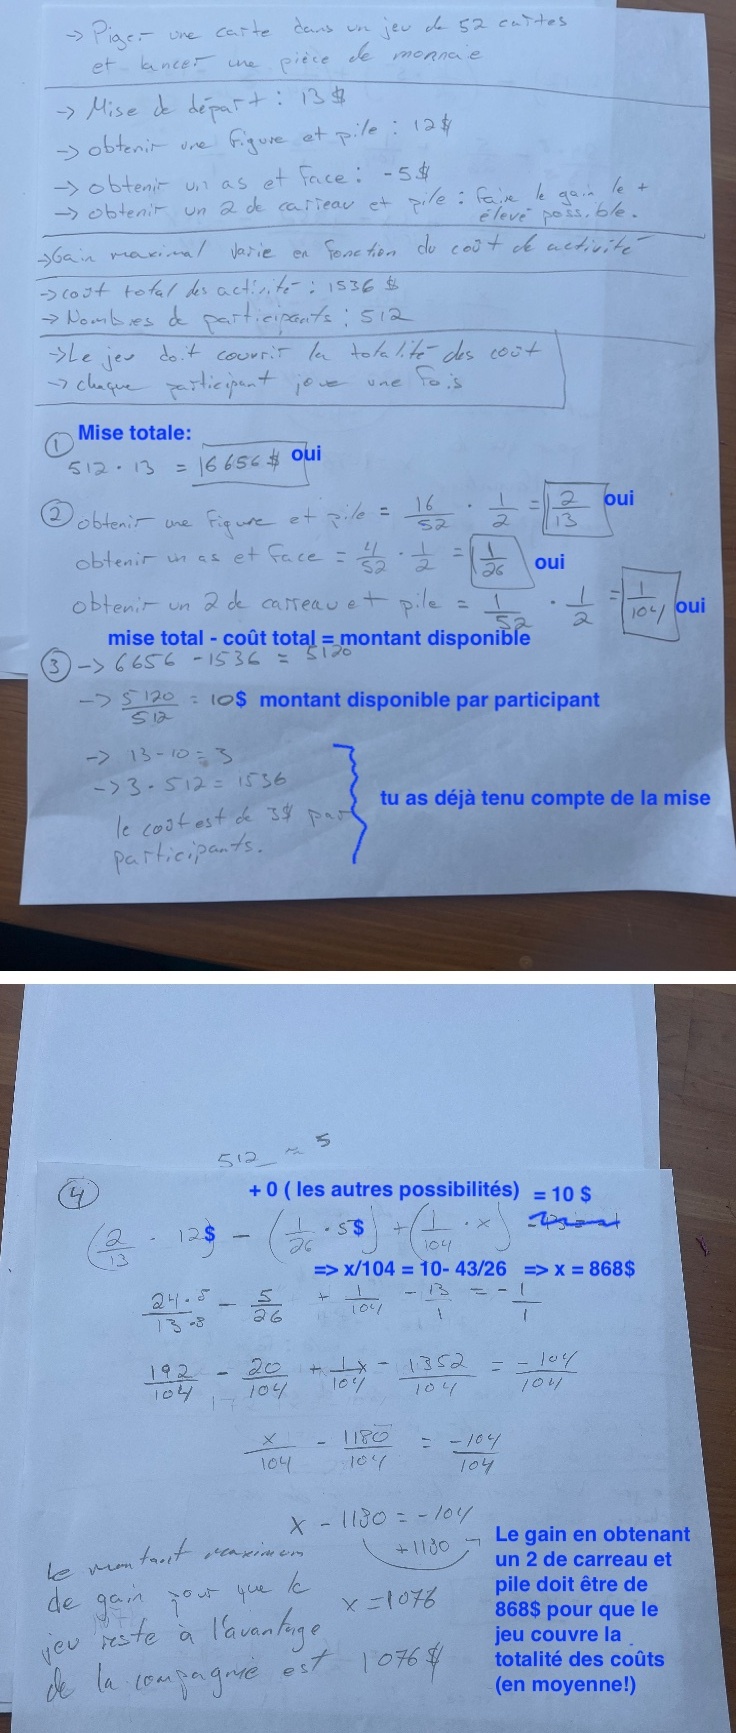 → Piger une carte dans un jeu de 52 cartes
et lancer une pièce de monnaie
→ Mise de départ : 13 $
→ obtenir une figure et pile : 12 $
→ obtenir un as et face : -5 $
→ obtenir un 2 de carreau et pile : faire le gain le +
élevé possible.
→ Gain maximal varie en fonction du coût de activité
→ coût total des activité : 1536 $
→ Nombres de participants : 512
→ Le jeu doit couvrir la totalité des coût
→ chaque participant joue une fois
① Mise totale:
512 · 13 = 6656 $ oui
② obtenir une figure et pile = 16/52 · 1/2 = 2/13 oui
obtenir un as et face = 4/52 · 1/2 = 1/26 oui
obtenir un 2 de carreau et pile = 1/52 · 1/2 = 1/104 oui
mise total - coût total = montant disponible
③ → 6656 - 1536 = 5120
→ 5120/512 = 10$ montant disponible par participant
→ 13 - 10 = 3
→ 3 · 512 = 1536
tu as déjà tenu compte de la mise
le coût est de 3$ par
participants.
512 ≈ 5
④ + 0 ( les autres possibilités) = 10 $
(2/13 · 12$) - (1/26 · 5$) + (1/104 · x)
=> x/104 = 10- 43/26 => x = 868$
24·8/13·8 - 5/26 + 1/104 - 13/1 = -1/1
192/104 - 20/104 + 1x/104 - 1352/104 = -104/104
x/104 - 1180/104 = -104/104
x - 1180 = -104
+1180
x = 1076
Le montant maximum
de gain pour que le
jeu reste à l'avantage
de la compagnie est 1076 $
Le gain en obtenant
un 2 de carreau et
pile doit être de
868$ pour que le
jeu couvre la
totalité des coûts
(en moyenne!)